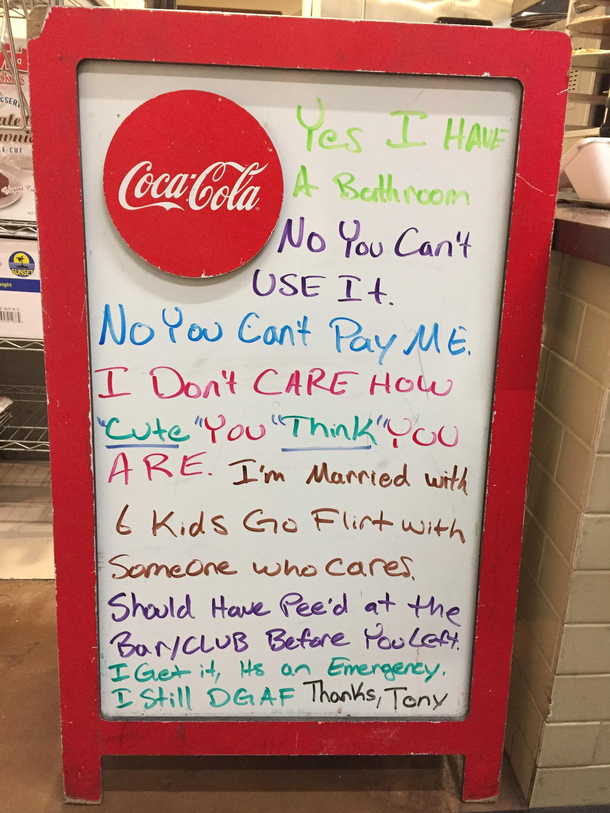 Coca-Cola
Yes I HAVE
A Bathroom
No You Can't
USE It.
No You Cant Pay ME.
I Don't CARE How
"Cute" You "Think" You
ARE. I'm Married with
6 Kids Go Flirt with
Someone who cares.
Should Have Pee'd at the
Bar/CLUB Before You Left.
I Get it, Its an Emergency.
I Still DGAF Thanks, Tony
SUNSET